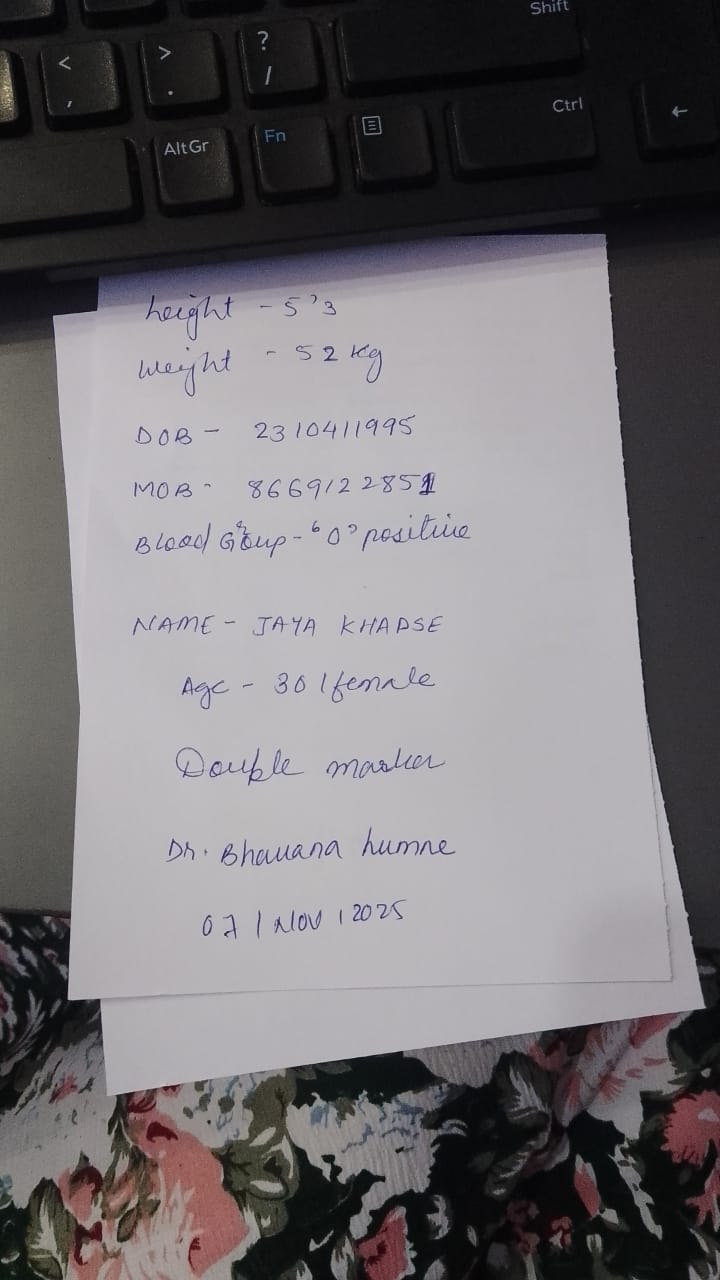 Shift
<
,
>
.
?
/
Ctrl
←
AltGr
Fn
height - 5'3
weight - 52 kg
DOB - 23/04/1995
MOB - 8669122851
Blood Group - "O" positive
NAME - JAYA KHADSE
Age - 30 / female
Double marker
Dr. Bhavana humne
07 / Nov / 2025